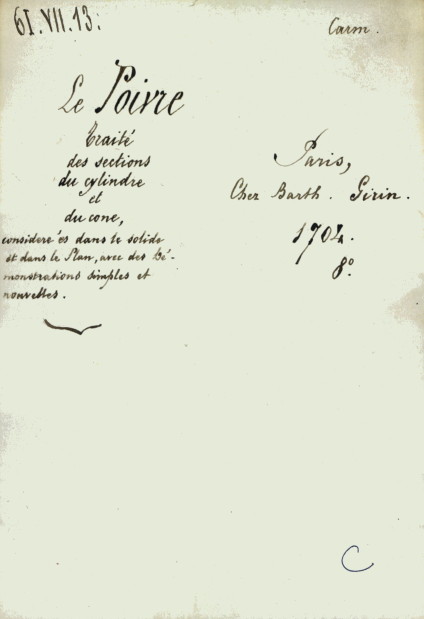 61.VII.13.
Carm.
Le Poivre
Traité
des sections
du cylindre
et
du cone,
considerées dans le solide
et dans le Plan, avec des Dé-
monstrations simples et
nouvelles.
Paris,
Chez Barth. Girin.
1704.
8º.
C